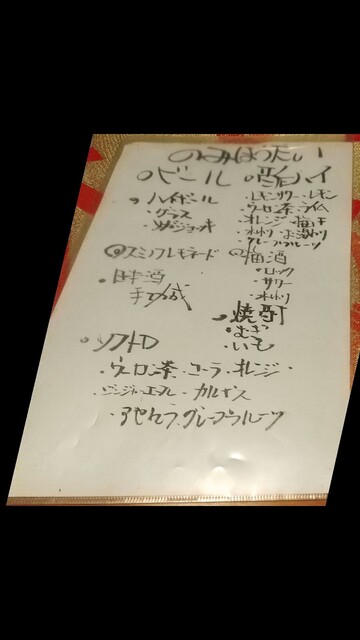 のみほうだい
○ビール
○ハイボール
・グラス
・メガジョッキ
◎スミノフレモネード
・日本酒
○酎ハイ
・レモンサワー・レモン
・ウーロン茶・ライム
・オレンジ・梅干
・水わり・お湯わり
・グレープフルーツ
◎梅酒
・ロック
・サワー
・水わり
○焼酎
・むぎ
・いも
○ソフトD
・ウーロン茶・コーラ・オレンジ・
・ジンジャーエール・カルピス
・アセロラ・グレープフルーツ